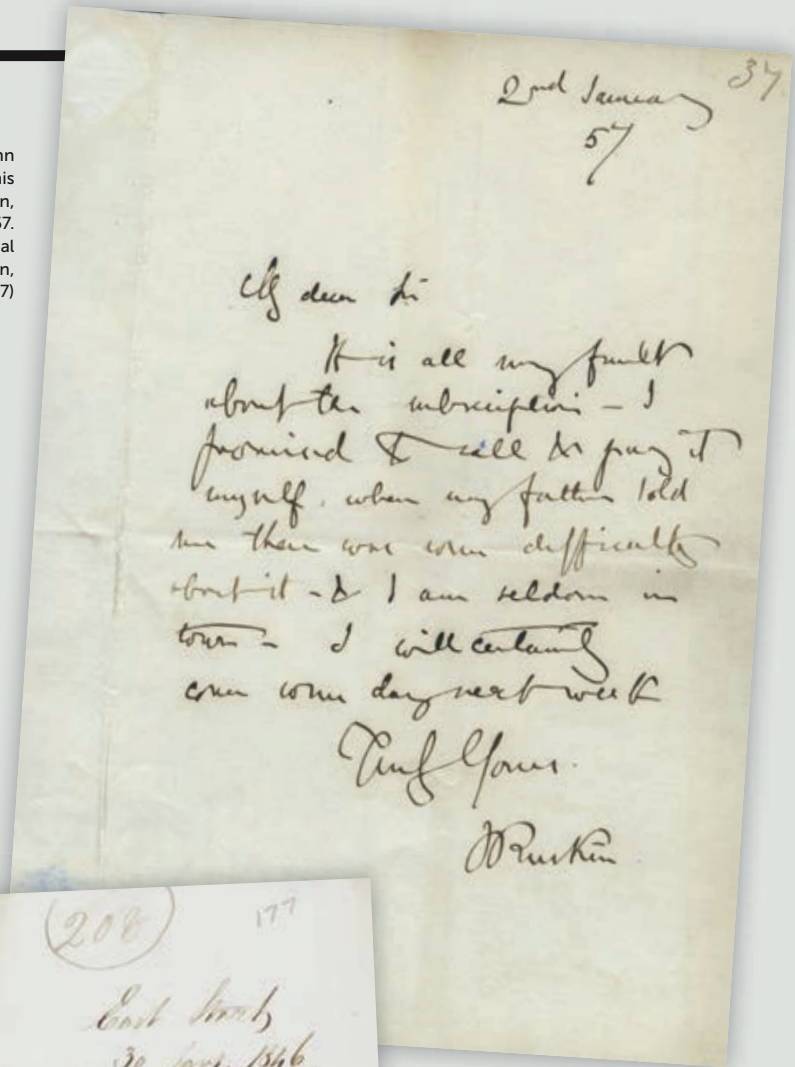 nn
his
n,
57.
al
n,
7)
37
2nd January
57
My dear Sir
It is all my fault
about the subscription – I
promised to call & pay it
myself. when my father told
me there was some difficulty
about it – & I am seldom in
town – I will certainly
come some day next week
Truly Yours.
JRuskin
208
177
East Street
30 Jany 1846